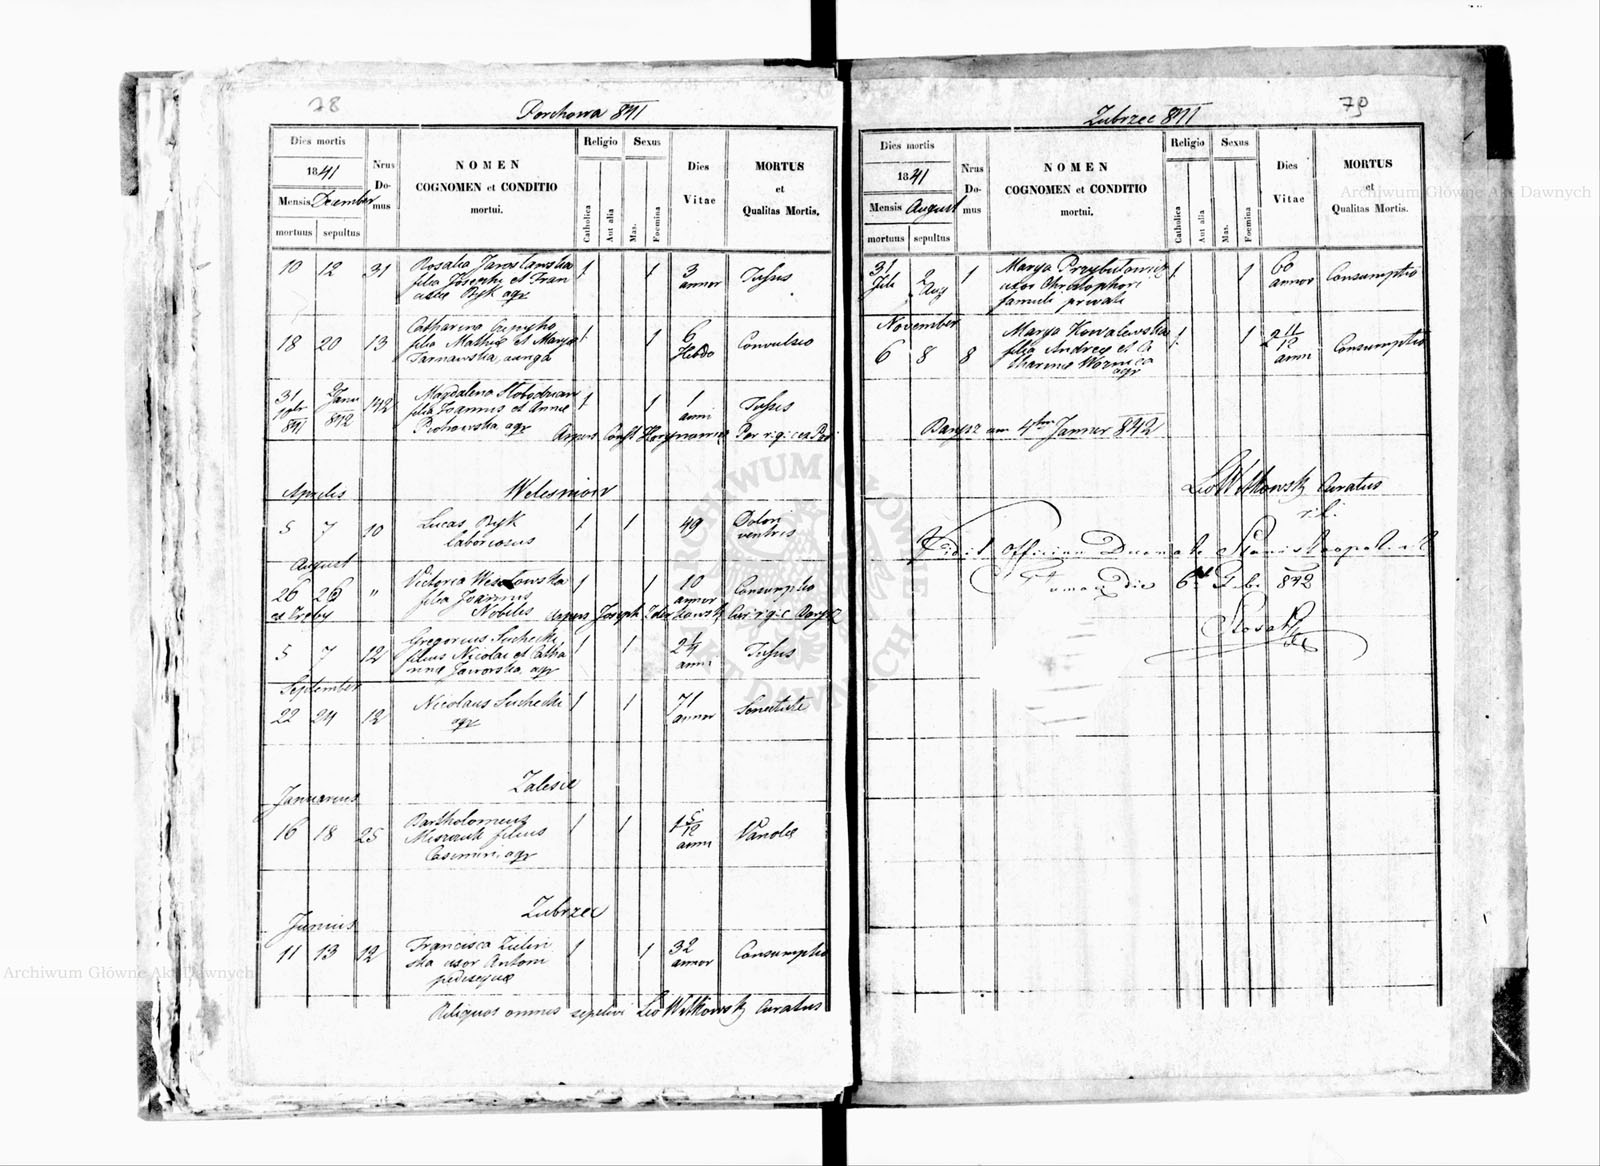 78
Porchowa 841
Dies mortis
1841
Mensis December
mortuus sepultus
Nrus Do- mus
NOMEN
COGNOMEN et CONDITIO
mortui.
Religio
Catholica
Aut alia
Sexus
Mas.
Foemina
Dies
Vitae
MORTUS
et
Qualitas Mortis.
10 12 31 Rosalia Jaroslawska 1 1 3 Tussis
filia Josephi et Fran annor
Byk agr
18 20 13 Catharina 1 1 6 Convulsio
filia Mathiæ et Marya Hebdo
Tarnawska
31 2 Janu 142 Magdalena Slobodzian 1 1 1 Tussis
841 842 filia Joannis et Annæ anni
agr
Aprilis Welesniow
5 7 10 Lucas Byk 1 1 49 Dolori
laboriosus ventris
August
26 26 " Victoria Wesolowska 1 1 10 Consumptio
filia Joannis annor
Nobilis Joseph
5 7 12 Gregorius Suchecki 1 1 2¼ Tussis
filius Nicolai et Catha anni
rina Jaworska agr
September
22 24 12 Nicolaus Suchecki 1 1 71 Senectute
agr annor
Zalesie
Januarius
16 18 25 Bartholomeus 1 1 1 5/12 Variolæ
filius anni
Casimiri agr
Zubrzec
Junius
11 13 12 Francisca Zielin 1 1 32 Consumptio
ska uxor Antoni annor
pedisequæ
Reliquos omnes sepelivi Leo Witkowski Curatus
79
Zubrzec 841
Dies mortis
1841
Mensis August
mortuus sepultus
Nrus Do- mus
NOMEN
COGNOMEN et CONDITIO
mortui.
Religio
Catholica
Aut alia
Sexus
Mas.
Foemina
Dies
Vitae
MORTUS
et
Qualitas Mortis.
31 2 1 Marya 1 1 60 Consumptio
Juli Aug uxor Christophori annor
famuli privati
November
6 8 8 Marya Kowalewska 1 1 2 11/12 Consumptio
filia Andreæ et Ca anni
tharinæ Woznica
agr
Barysz am 4ten Janner 842
Leo Witkowski Curatus
Vidit Officium Decanale
die 6 842
Archiwum Główne Akt Dawnych
Archiwum Główne Akt Dawnych
ARCHIWUM GŁÓWNE AKT DAWNYCH